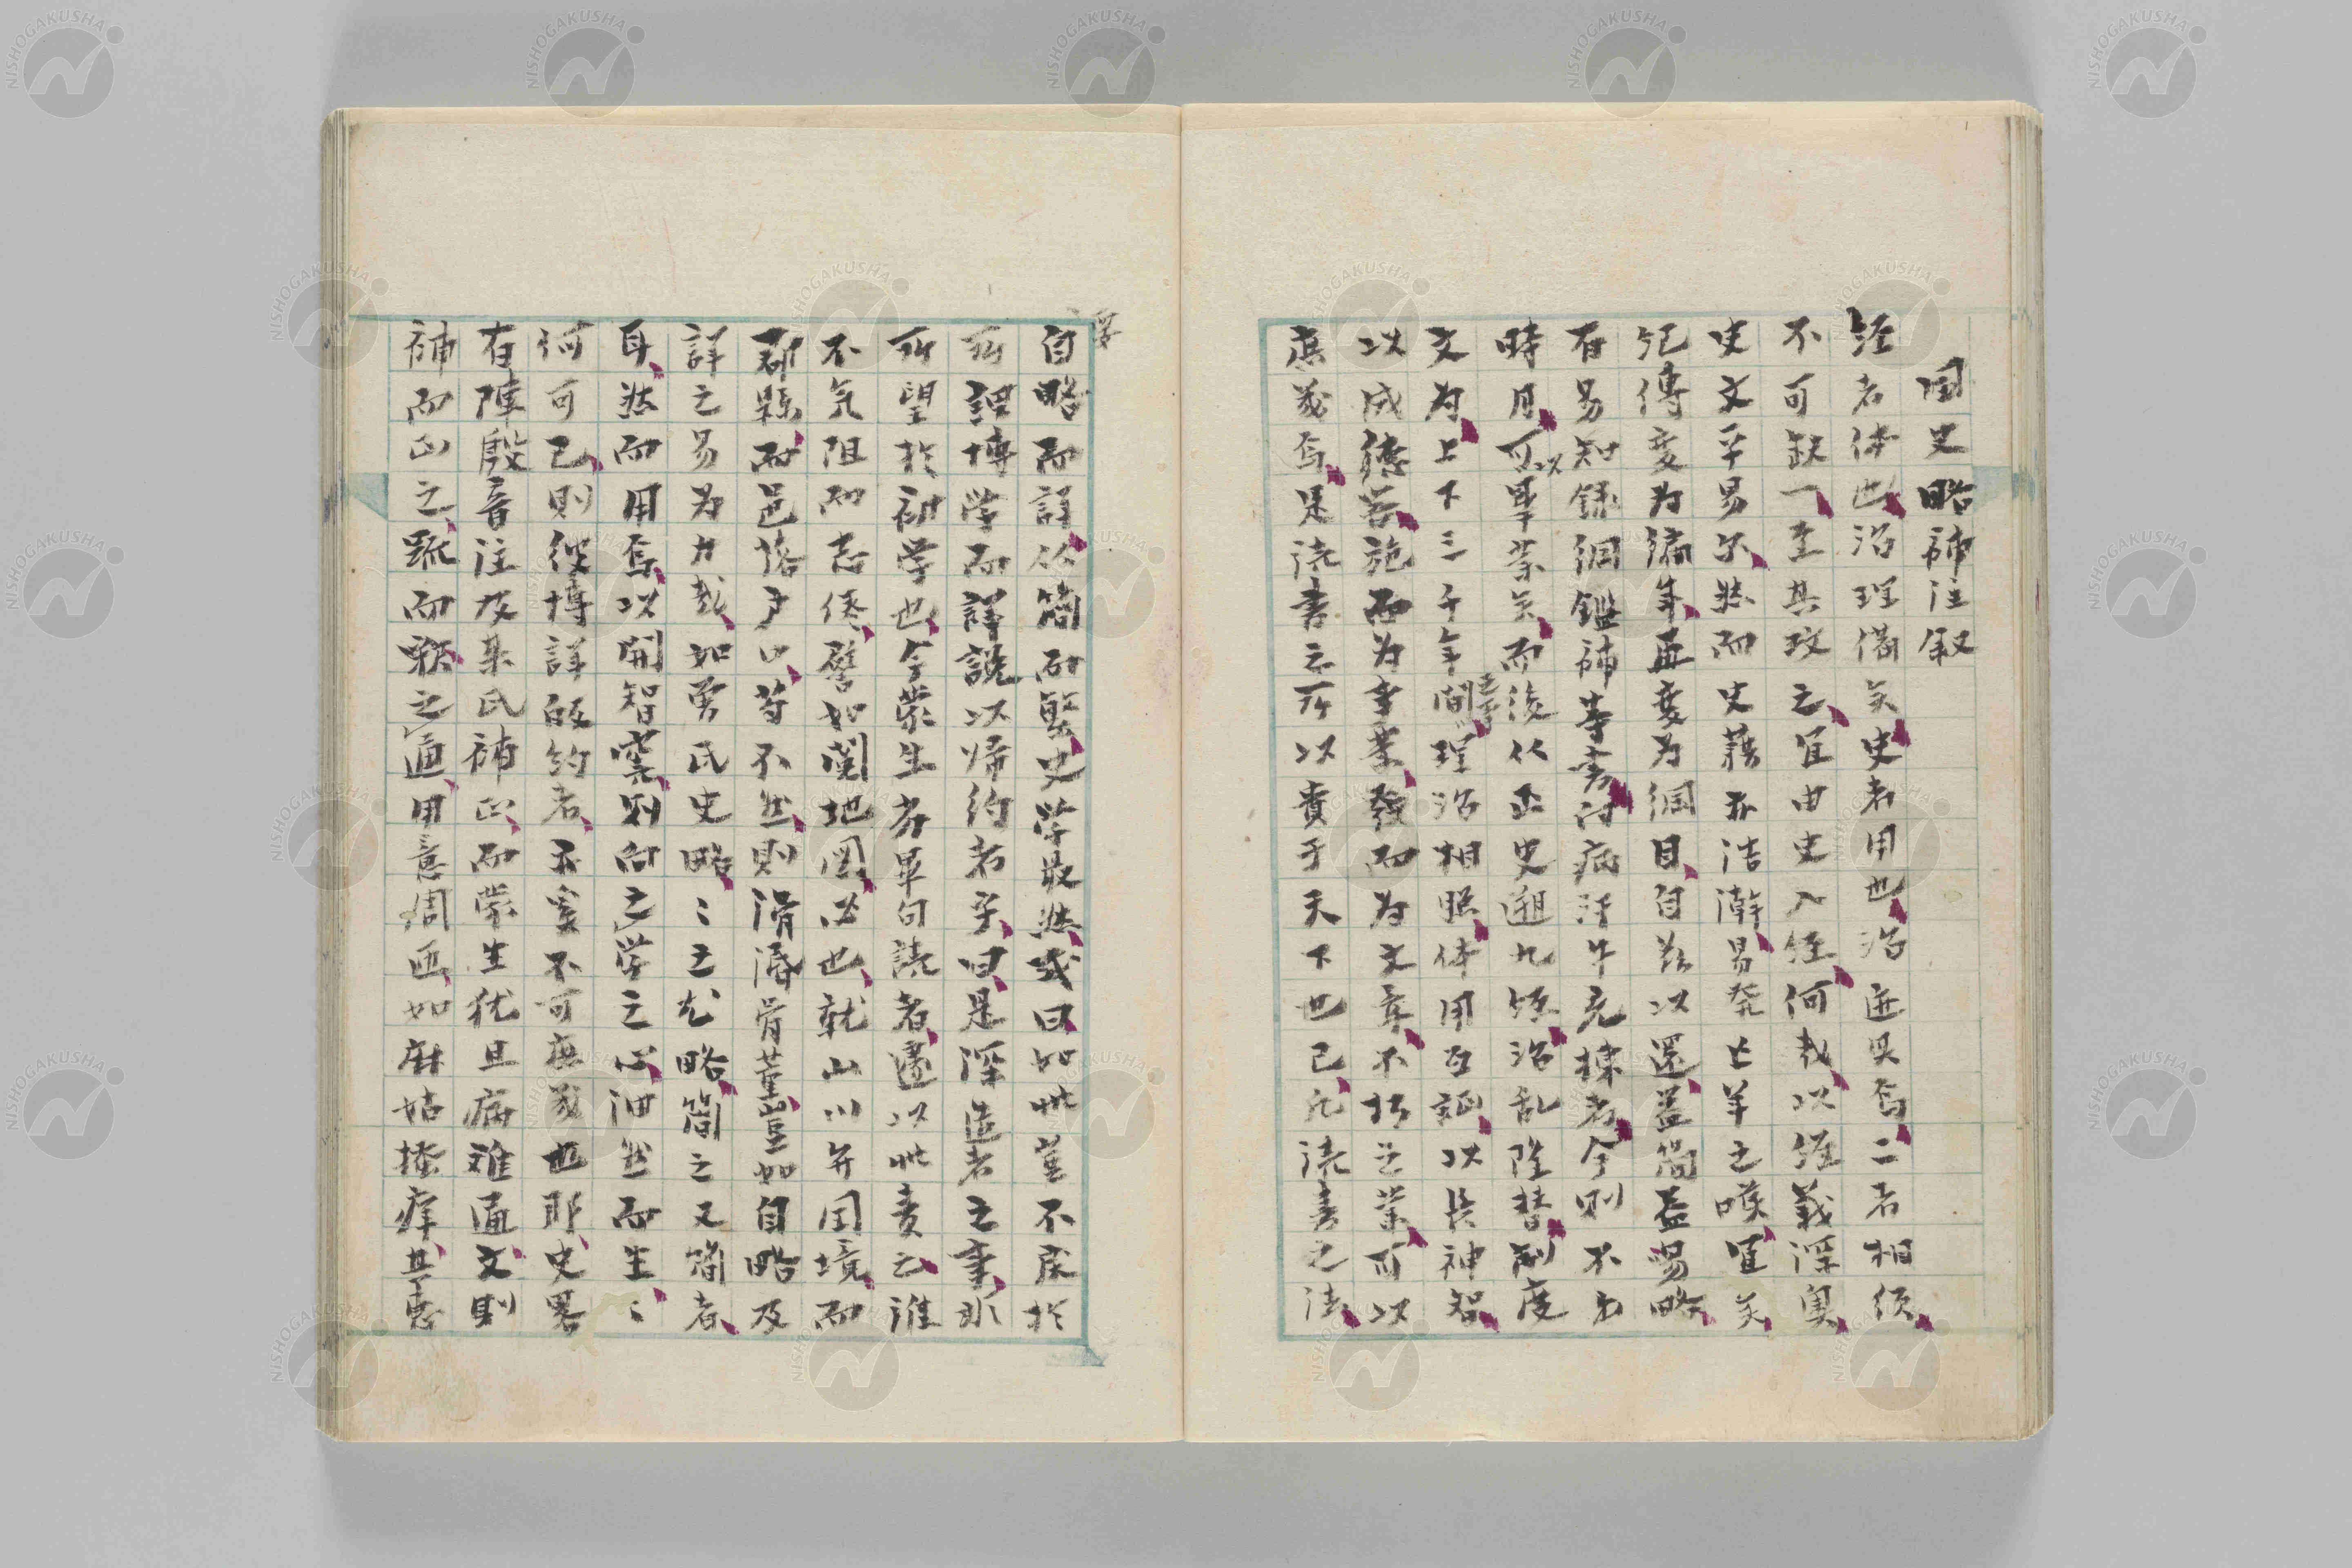 国史略補注叙
経者体也治理備矣史者用也治迹具焉二者相須
不可缺一至其攻之宜由史入経何哉以経義深奥
史文平易尔然而史籍亦浩瀚易発亡羊之嘆宜矣
紀傳変为編年再変为綱目自茲以還益簡益易略
有易知録綱鑑補等書尚病汗牛充棟者今則不出
時月可以畢業矣而後從正史遡九経治乱隆替制度
文为上下三千年間理治相照体用互証以長神智
以成徳器施而为事業發而为文章不朽之業可以
庶幾焉是読書之所以貴于天下也已凡読書之法
自略而詳從簡而繁史学最然或曰如此豈不戻於
所謂博学而詳説以帰約者乎曰是深造者之事非
所望於初学也今蒙生劣畢句読者遽以此責之誰
不気阻而志倦譬如閲地図必也就山川并国境而
郡縣而邑落戸口苟不然則滑湣骨董豈如自略及
詳之易为力哉如勇氏史略〻之尤略簡之又簡者
耳然而用焉以開智竅則向之学之心油然而生〻
何可已則從博詳皈約者亦奚不可庶幾也耶史略
有陣殷音注及某氏補正而蒙生犹且病難通文則
補而正之疏而釈之通用意周匝如麻姑掻痒其恵
浮
NISHOGAKUSHA